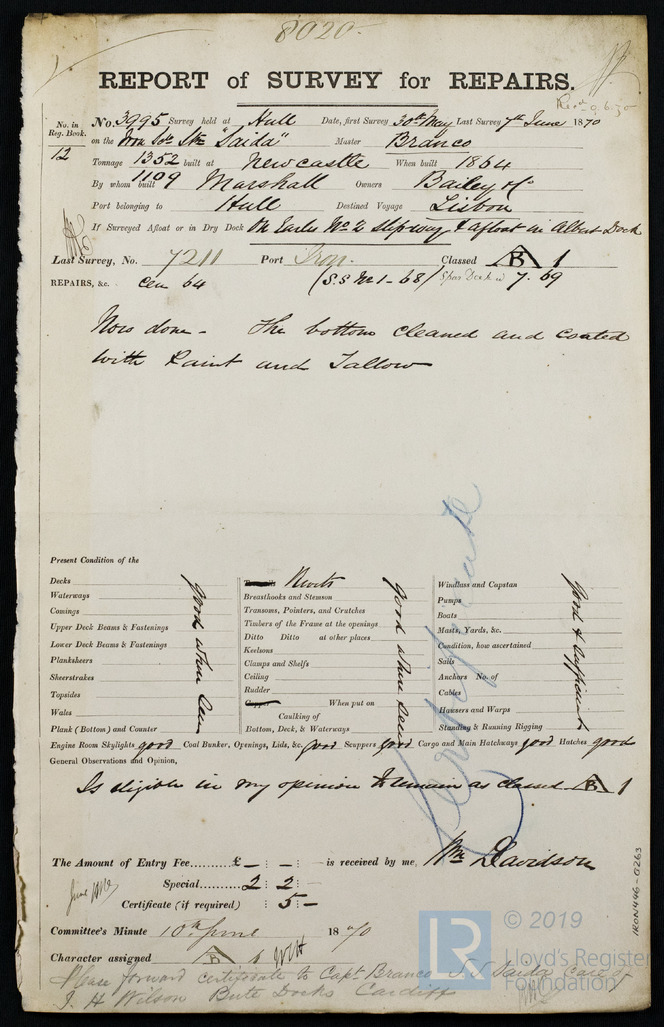 8020
REPORT of SURVEY for REPAIRS.
No. in Reg. Book.
12
No. 3995 Survey held at Hull Date, first Survey 30th May Last Survey 7th June 1870
on the Iron Scr Str "Saida" Master Branco
Tonnage 1352 built at Newcastle When built 1864
1109
By whom built Marshall Owners Bailey &c
Port belonging to Hull Destined Voyage Lisbon
If Surveyed Afloat or in Dry Dock On Earles No 2 slipway & afloat in Albert Dock
Last Survey, No. 7211 Port Iron. Classed B 1
REPAIRS, &c. 64 (S.S No 1 - 68) Spar Deck 7.69
Now done - The bottom cleaned and coated
with Paint and Tallow
Present Condition of the
Decks
Waterways
Comings
Upper Deck Beams & Fastenings
Lower Deck Beams & Fastenings
Planksheers
Sheerstrakes
Topsides
Wales
Plank (Bottom) and Counter
good when seen
Rivets
Breasthooks and Stemson
Transoms, Pointers, and Crutches
Timbers of the Frame at the openings
Ditto Ditto at other places
Keelsons
Clamps and Shelfs
Ceiling
Rudder
Copper When put on
Caulking of
Bottom, Deck, & Waterways
good when seen
Windlass and Capstan
Pumps
Boats
Masts, Yards, &c.
Condition, how ascertained
Sails
Anchors No. of
Cables
Hawsers and Warps
Standing & Running Rigging
good & sufficient
Certificate
Engine Room Skylights good Coal Bunker, Openings, Lids, &c. good Scuppers good Cargo and Main Hatchways good Hatches good
General Observations and Opinion,
Is eligible in my opinion to remain as classed B 1
The Amount of Entry Fee......£ - : - : - is received by me, Wm Davidson
Special.........2 : 2 : -
Certificate (if required) : 5 : -
Committee's Minute 10th June 1870
Character assigned B 1
Please forward certificate to Capt Branco S.S Saida Care of
J. H Wilson Bute Docks Cardiff
IRON446-0263
LR
© 2019
Lloyd's Register
Foundation